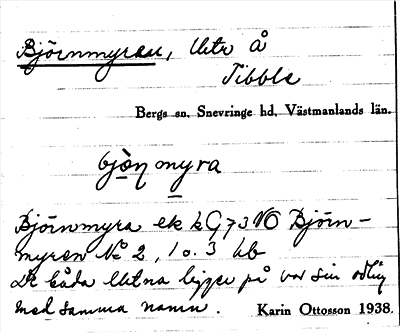 Björnmyran, Utr Å
Tibble
Bergs sn. Snevringe hd. Västmanlands län.
bjö̀ɳ myra
Björnmyra ek k G 73 NO Björn-
myren No 2, 1 o. 3 hb
De båda Utrna ligger på var sin odling
med samma namn.
Karin Ottosson 1938.